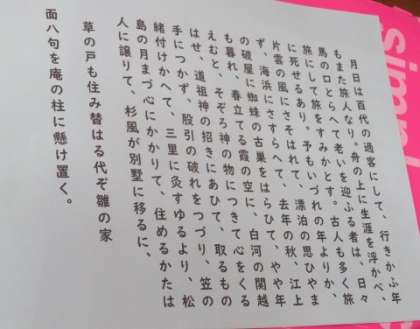 月日は百代の過客にして、行きかふ年
もまた旅人なり。舟の上に生涯を浮かべ、
馬の口とらへて老いを迎ふる者は、日々
旅にして旅をすみかとす。古人も多く旅
に死せるあり。予もいづれの年よりか、
片雲の風にさそはれて、漂泊の思ひやま
ず、海浜にさすらへて、去年の秋、江上
の破屋に蜘蛛の古巣をはらひて、やや年
も暮れ、春立てる霞の空に、白河の関越
えむと、そぞろ神の物につきて心をくる
はせ、道祖神の招きにあひて、取るもの
手につかず、股引の破れをつづり、笠の
緒付けかへて、三里に灸すゆるより、松
島の月まづ心にかかりて、住めるかたは
人に譲りて、杉風が別墅に移るに、
草の戸も住み替はる代ぞ雛の家
面八句を庵の柱に懸け置く。